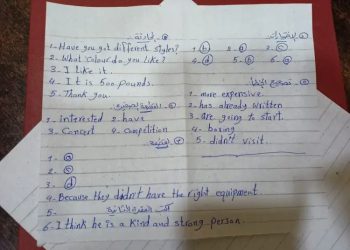 المحادثة
1- Have you got different styles?
2- What colour do you like?
3- I like it.
4- It is 500 pounds.
5- Thank you.
1- interested 2- have
3- Concert 4- Competition
1- a
2- c
3- d
4- Because they didn't have the right equipment
5-
6- I think he is a kind and strong person.
الاختيارات
1- b 2- a 3- c
4- d 5- b 6- a
تصحيح الأخطاء
1- more expensive
2- has already written
3- are going to start.
4- boring
5- didn't visit